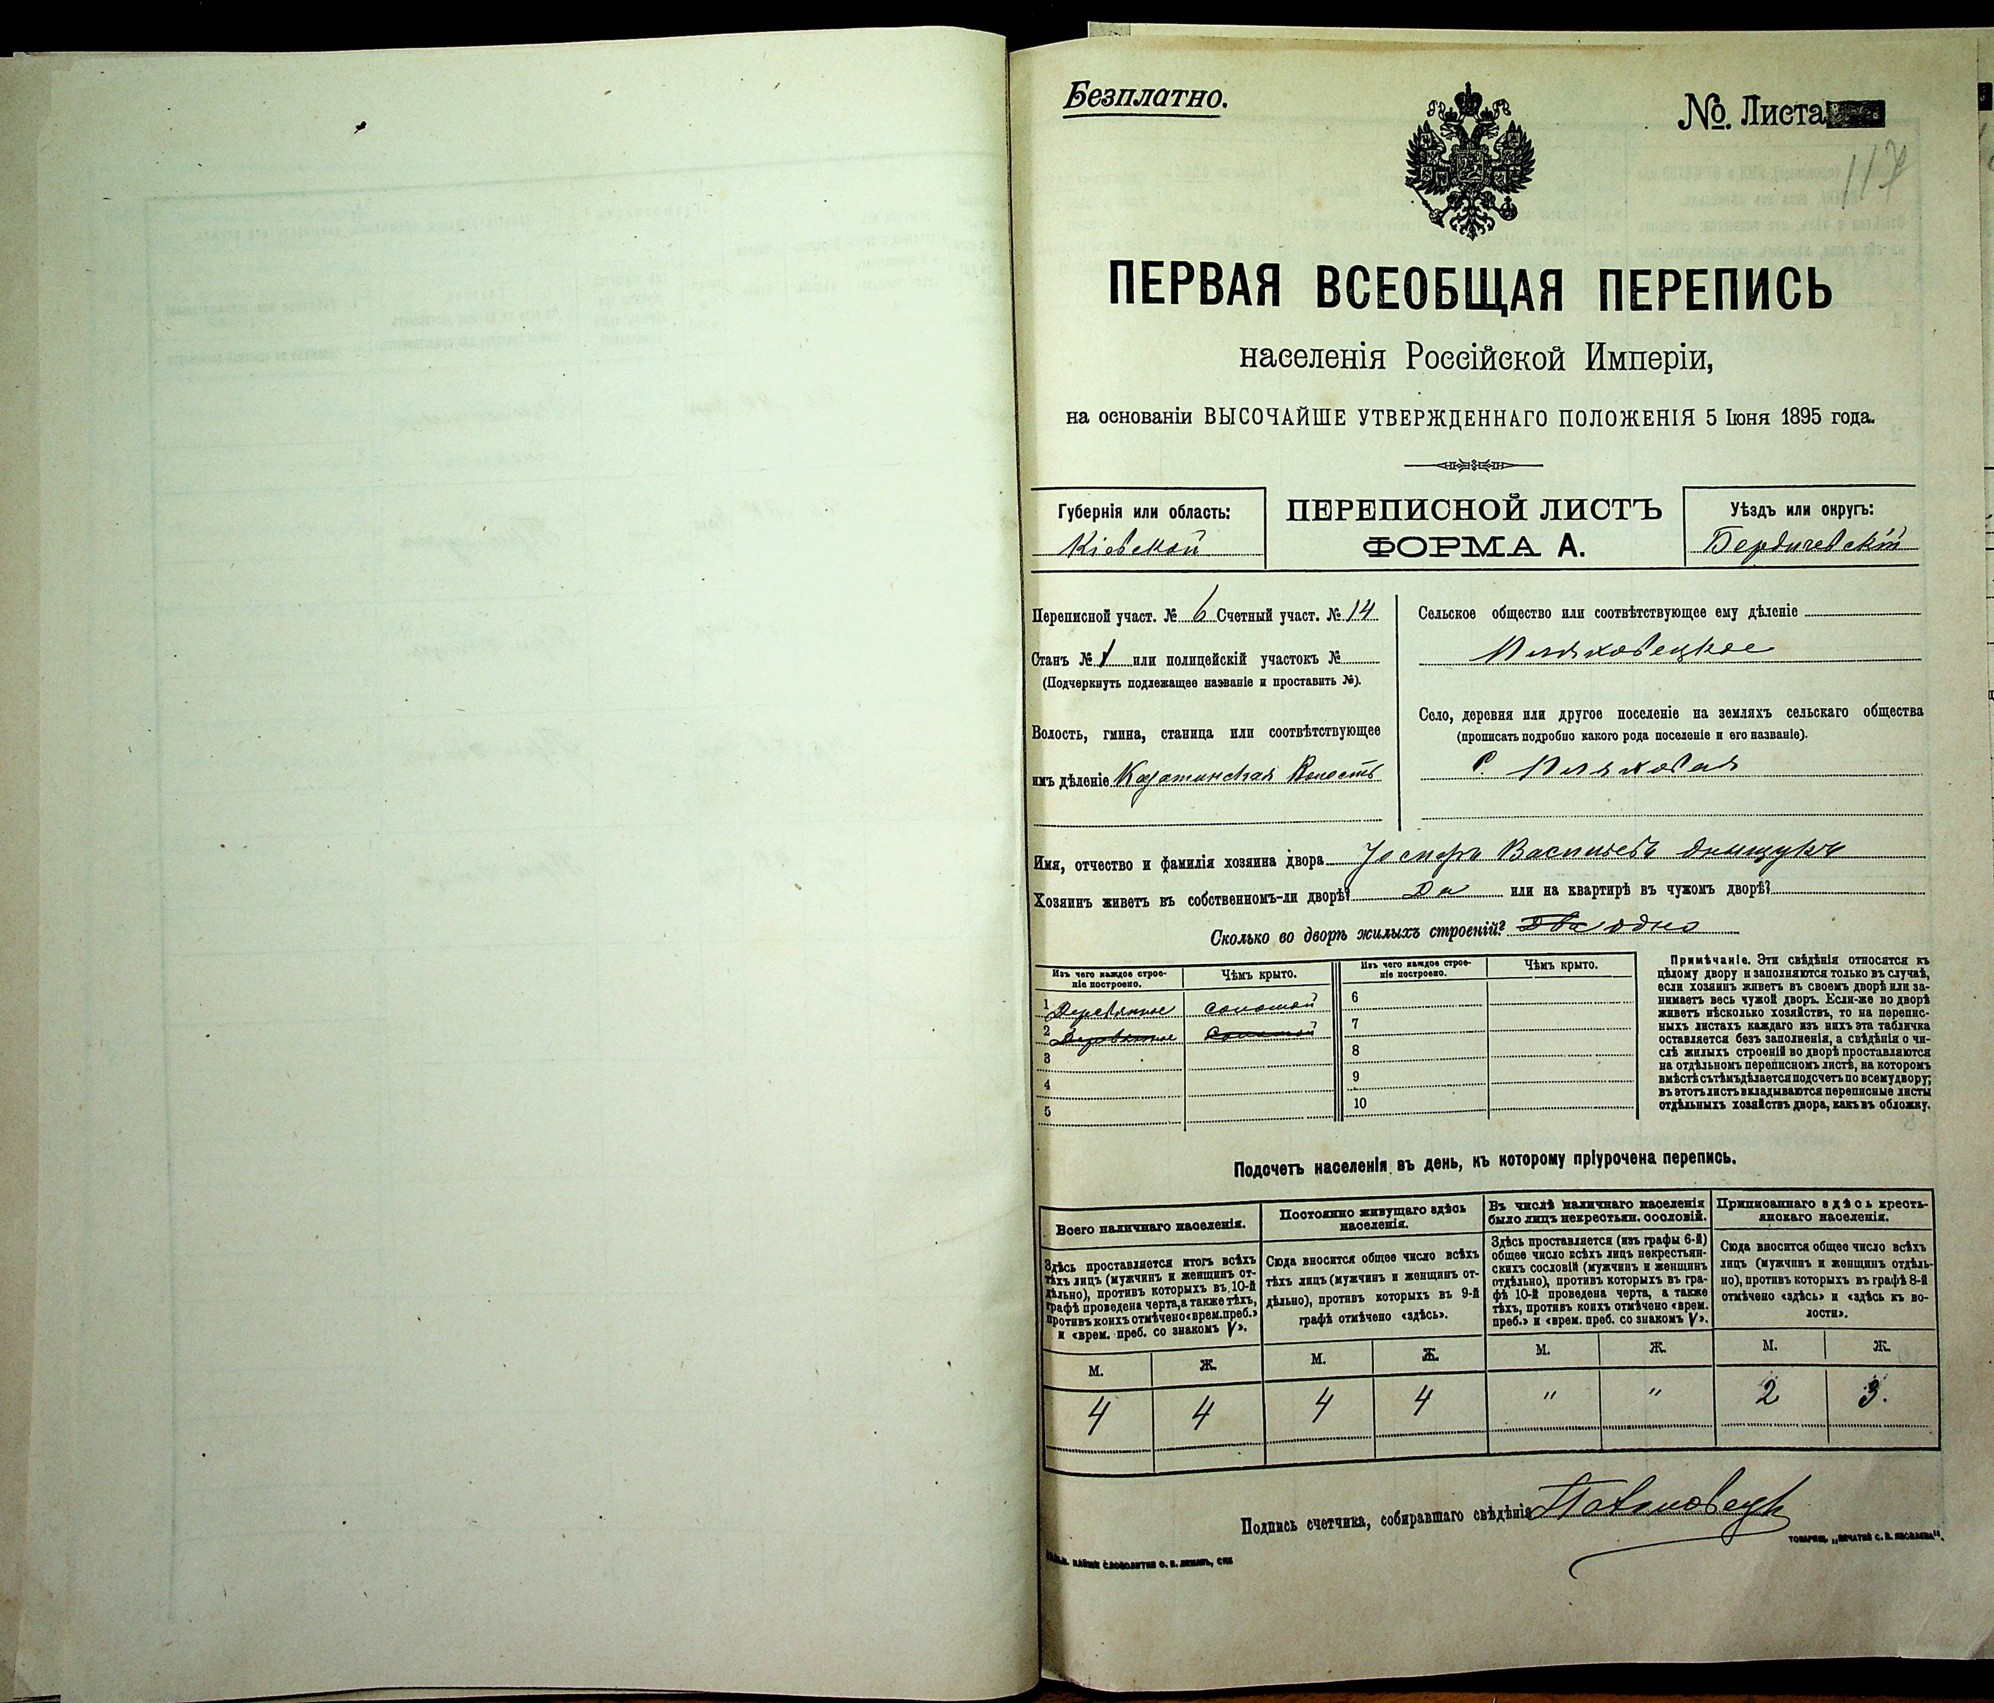 Безплатно.
№. Листа
117
ПЕРВАЯ ВСЕОБЩАЯ ПЕРЕПИСЬ
населенія Россійской Имперіи,
на основаніи ВЫСОЧАЙШЕ УТВЕРЖДЕННАГО ПОЛОЖЕНІЯ 5 Іюня 1895 года.
Губернія или область:
Кіевской
ПЕРЕПИСНОЙ ЛИСТЪ
ФОРМА А.
Уѣздъ или округъ:
Бердичевскій
Переписной участ. № 6 Счетный участ. № 14
Станъ № 1 или полицейскій участокъ №
(Подчеркнуть подлежащее названіе и проставить №).
Волость, гмина, станица или соотвѣтствующее
имъ дѣленіе Казатинская Волость
Сельское общество или соотвѣтствующее ему дѣленіе
Пляховецкое
Село, деревня или другое поселеніе на земляхъ сельскаго общества
(прописать подробно какого рода поселеніе и его названіе).
С. Пляховая
Имя, отчество и фамилія хозяина двора Васильевъ
Хозяинъ живетъ въ собственномъ-ли дворѣ? Да или на квартирѣ въ чужомъ дворѣ?
Сколько во дворѣ жилыхъ строеній? Два одно
Изъ чего каждое строе-
ніе построено.
Чѣмъ крыто.
Изъ чего каждое строе-
ніе построено.
Чѣмъ крыто.
1 Деревянное соломой
2 Деревянное соломой
3
4
5
6
7
8
9
10
Примѣчаніе. Эти свѣдѣнія относятся къ
цѣлому двору и заполняются только въ случаѣ,
если хозяинъ живетъ въ своемъ дворѣ или за-
нимаетъ весь чужой дворъ. Если-же во дворѣ
живетъ нѣсколько хозяйствъ, то на перепис-
ныхъ листахъ каждаго изъ нихъ эта табличка
оставляется безъ заполненія, а свѣдѣнія о чи-
слѣ жилыхъ строеній во дворѣ проставляются
на отдѣльномъ переписномъ листѣ, на которомъ
вмѣстѣ съ тѣмъ дѣлается подсчетъ по всему двору;
въ этотъ листъ вкладываются переписные листы
отдѣльныхъ хозяйствъ двора, какъ въ обложку.
Подсчетъ населенія въ день, къ которому пріурочена перепись.
Всего наличнаго населенія.
Здѣсь проставляется итогъ всѣхъ
тѣхъ лицъ (мужчинъ и женщинъ от-
дѣльно), противъ которыхъ въ 10-й
графѣ проведена черта, а также тѣхъ,
противъ коихъ отмѣчено «врем. преб.»
и «врем. преб. со знакомъ V».
Постоянно живущаго здѣсь
населенія.
Сюда вносится общее число всѣхъ
тѣхъ лицъ (мужчинъ и женщинъ от-
дѣльно), противъ которыхъ въ 9-й
графѣ отмѣчено «здѣсь».
Въ числѣ наличнаго населенія
было лицъ некрестьян. сословій.
Здѣсь проставляется (изъ графы 6-й)
общее число всѣхъ лицъ некрестьян-
скихъ сословій (мужчинъ и женщинъ
отдѣльно), противъ которыхъ въ гра-
фѣ 10-й проведена черта, а также
тѣхъ, противъ коихъ отмѣчено «врем.
преб.» и «врем. преб. со знакомъ V».
Приписаннаго здѣсь кресть-
янскаго населенія.
Сюда вносится общее число всѣхъ
лицъ (мужчинъ и женщинъ отдѣль-
но), противъ которыхъ въ графѣ 8-й
отмѣчено «здѣсь» и «здѣсь къ во-
лости».
М. Ж. М. Ж. М. Ж. М. Ж.
4 4 4 4 " " 2 3.
Подпись счетчика, собиравшаго свѣдѣнія
ТОВАРИЩ. „ПЕЧАТНЯ С. П. ЯКОВЛЕВА".